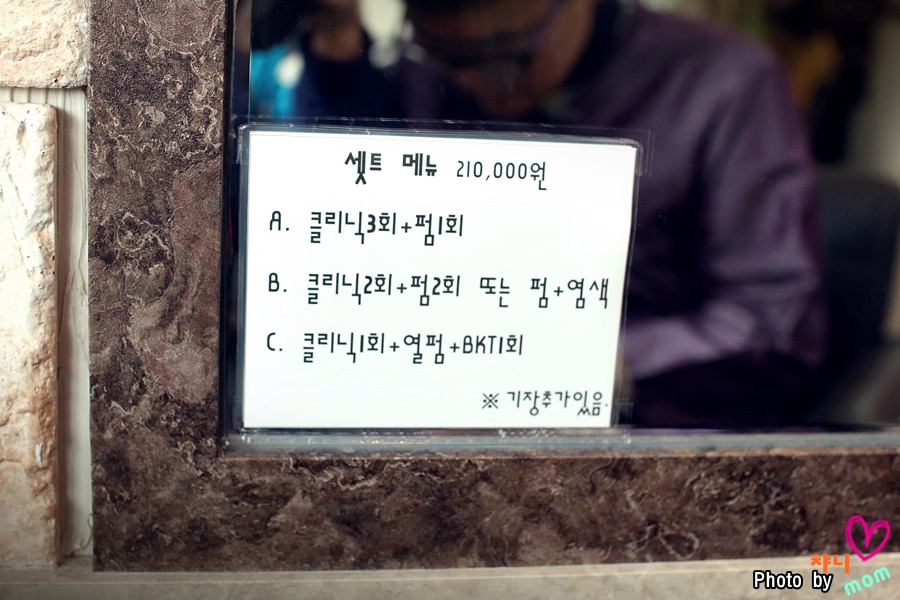 셋트 메뉴 210,000원
A. 클리닉3회+펌1회
B. 클리닉2회+펌2회 또는 펌+염색
C. 클리닉1회+열펌+BKT1회
※ 기장추가있음.
챠니
Photo by mom